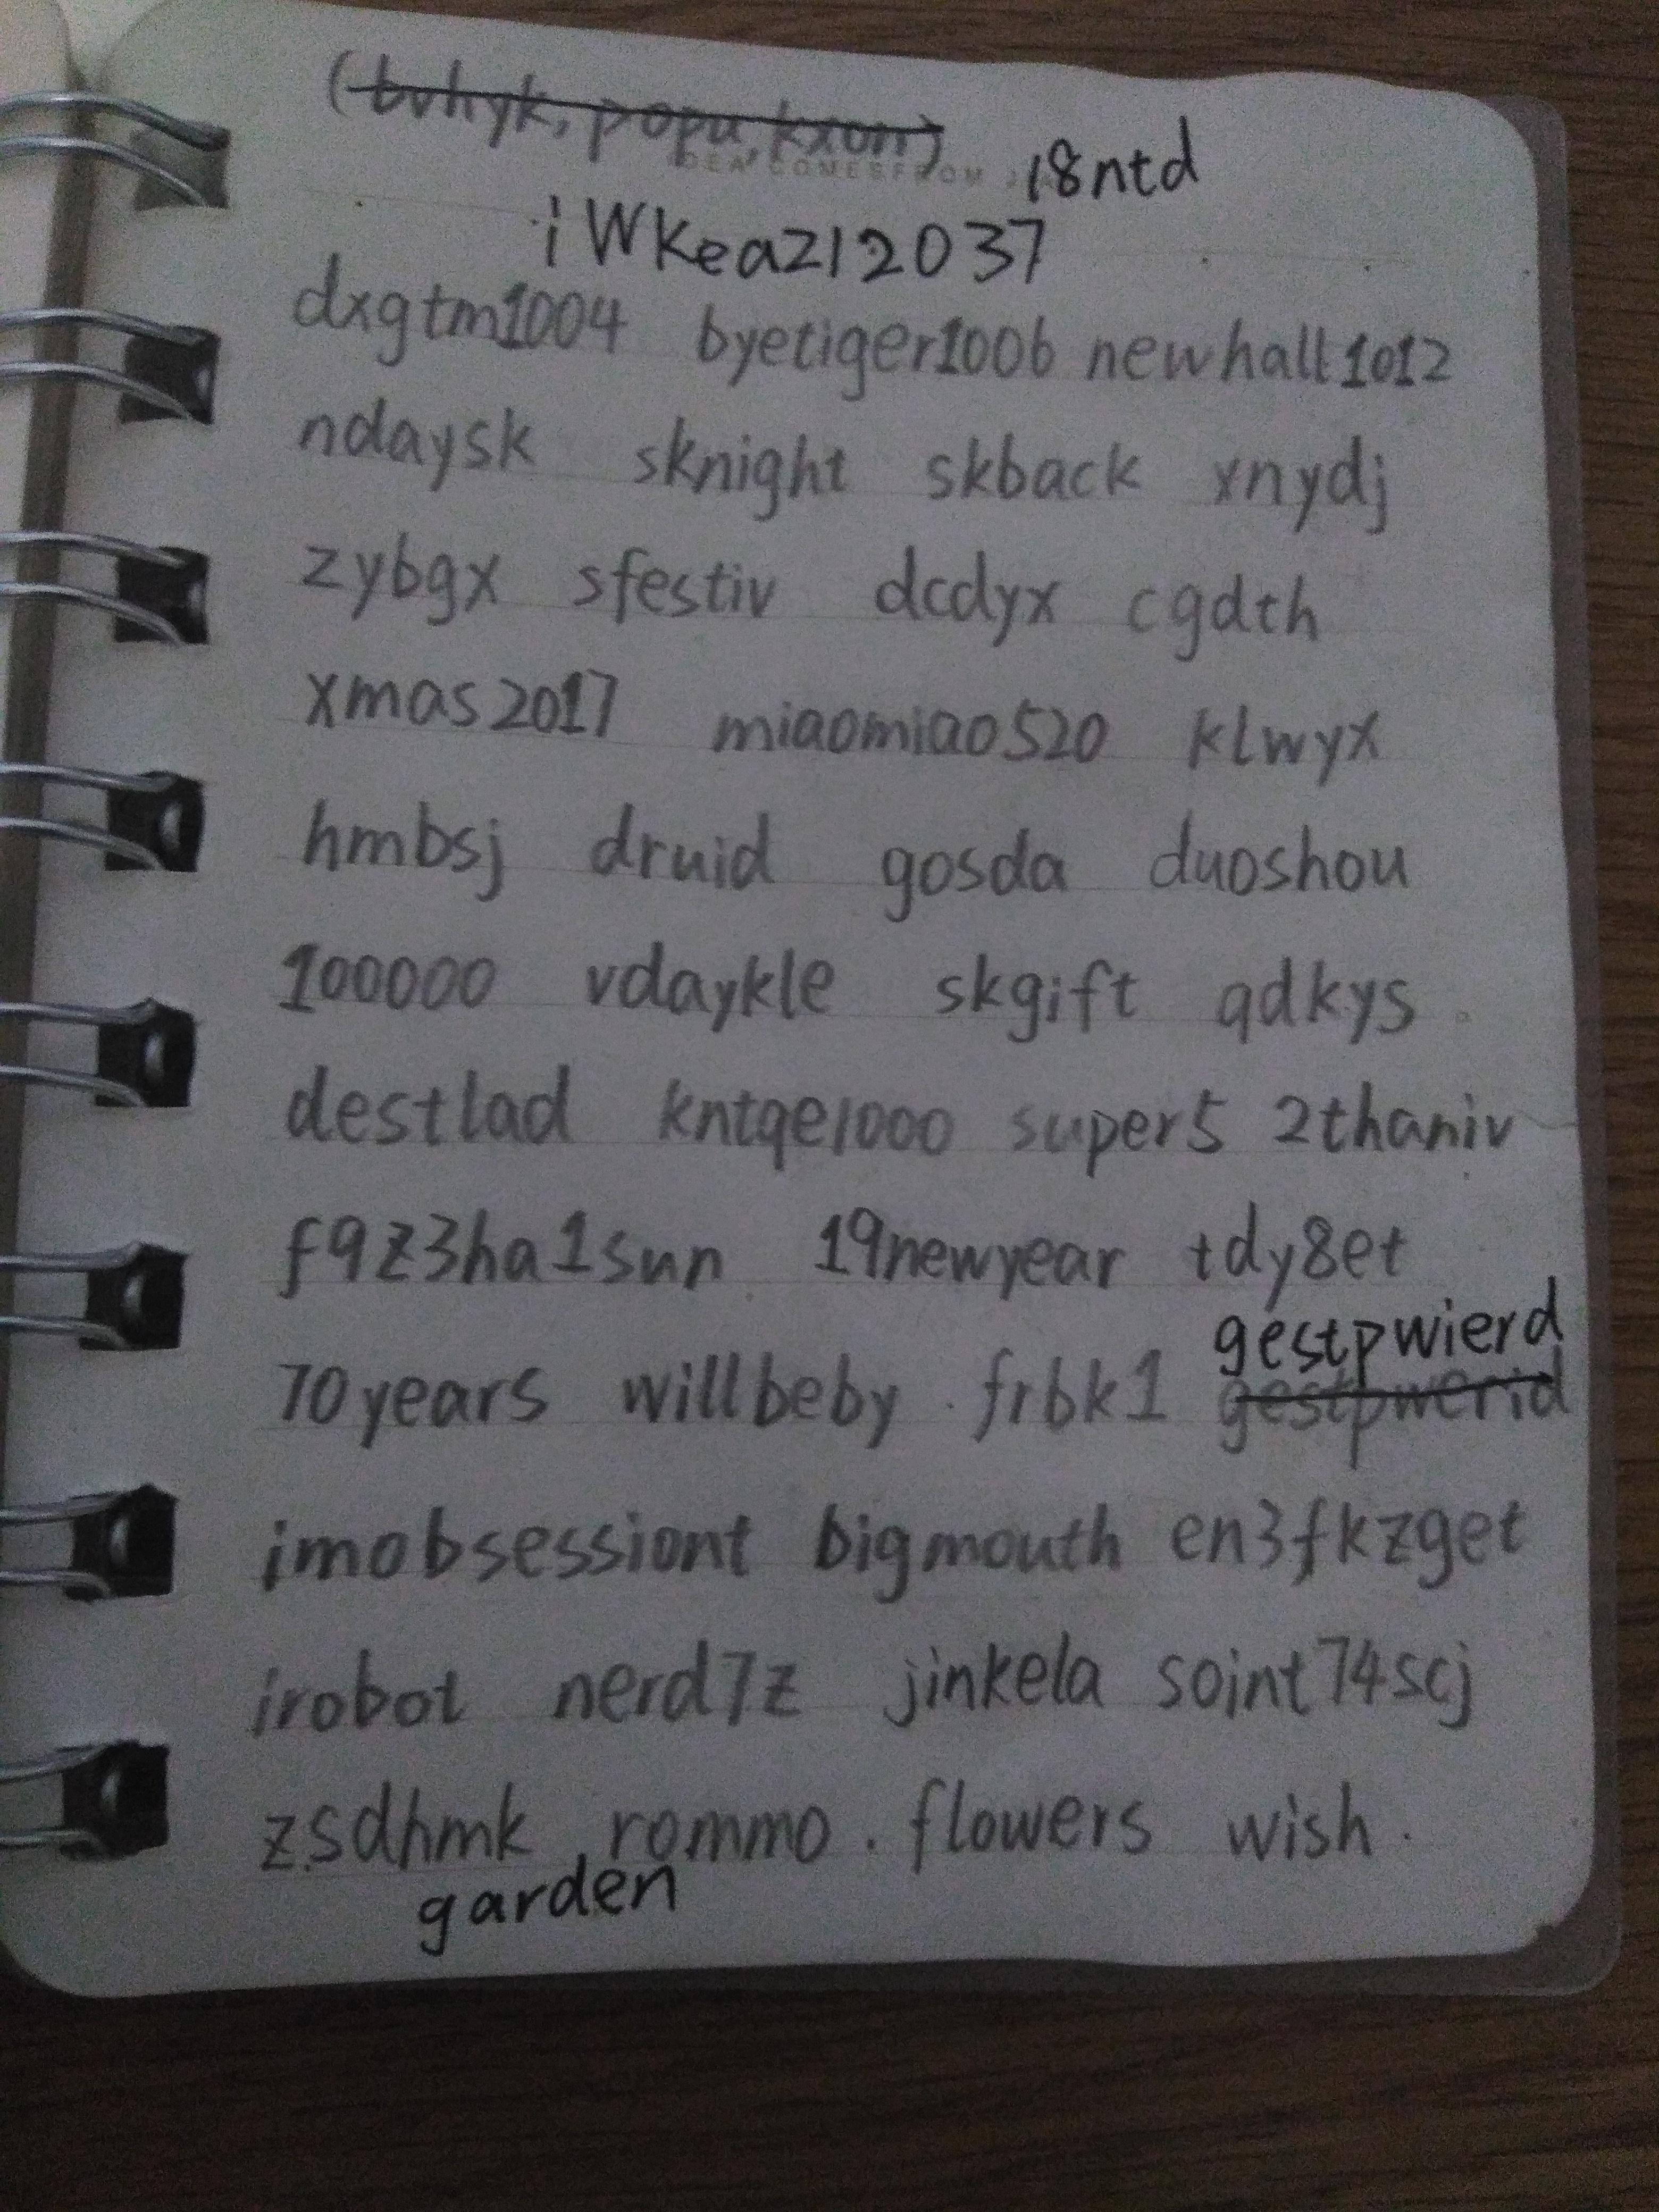 (bvhyk, popu, kxon)
18ntd
iWKeazl2037
dxgtm1004 byetiger1006 newhall1012
ndaysk sknight skback xnydj
zybgx sfestiv dcdyx cgdth
xmas2017 miaomiao520 klwyx
hmbsj druid gosda duoshou
100000 vdaykle skgift qdkys
destlad kntqe1000 super5 2thaniv
f9z3ha1sun 19newyear tdy8et
gestpwierd
70years willbeby frbk1 gestpwerid
imobsessiont bigmouth en3fkzget
irobot nerd7z jinkela soint74scj
zsdhmk rommo. flowers wish.
garden